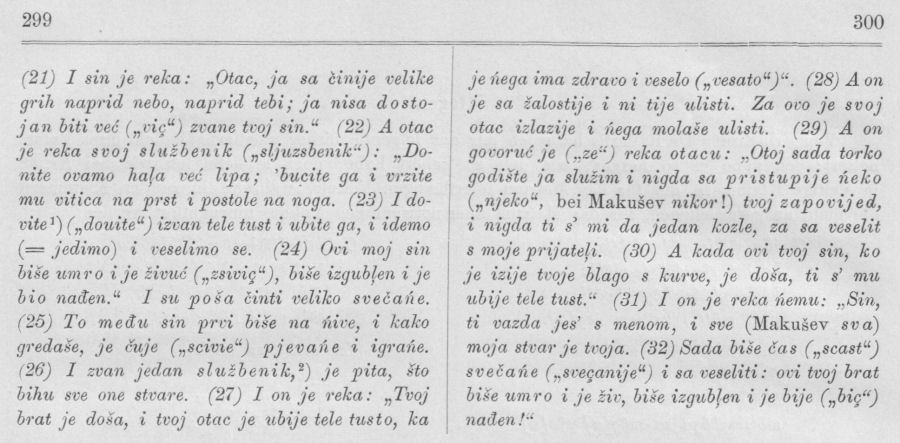 299
300
(21) I sin je reka: „Otac, ja sa činije velike
grih naprid nebo, naprid tebi; ja nisa dosto-
jan biti već („viç“) zvane tvoj sin.“ (22) A otac
je reka svoj službenik („sljuzsbenik“): „Do-
nite ovamo haļa već lipa; 'bucite ga i vrzite
mu vitica na prst i postole na noga. (23) I do-
vite¹) („douite“) izvan tele tust i ubite ga, i idemo
(= jedimo) i veselimo se. (24) Ovi moj sin
biše umro i je živuć („zsiviç“), biše izgubļen i je
bio nađen.“ I su poša činti veliko svečańe.
(25) To među sin prvi biše na ńive, i kako
gredaše, je čuje („scivie“) pjevańe i igrańe.
(26) I zvan jedan službenik,²) je pita, što
bihu sve one stvare. (27) I on je reka: „Tvoj
brat je doša, i tvoj otac je ubije tele tusto, ka
je ńega ima zdravo i veselo („vesato“)“. (28) A on
je sa žalostije i ni tije ulisti. Za ovo je svoj
otac izlazije i ńega molaše ulisti. (29) A on
govoruć je („ze“) reka otacu: „Otoj sada torko
godište ja služim i nigda sa pristupije ńeko
(„njeko“, bei Makušev nikor!) tvoj zapovijed,
i nigda ti s' mi da jedan kozle, za sa veselit
s moje prijateļi. (30) A kada ovi tvoj sin, ko
je izije tvoje blago s kurve, je doša, ti s' mu
ubije tele tust.“ (31) I on je reka ńemu: „Sin,
ti vazda jes' s menom, i sve (Makušev sva)
moja stvar je tvoja. (32) Sada biše čas („scast“)
svečańe („sveçanije“) i sa veseliti: ovi tvoj brat
biše umro i je živ, biše izgubļen i je bije („biç“)
nađen!“